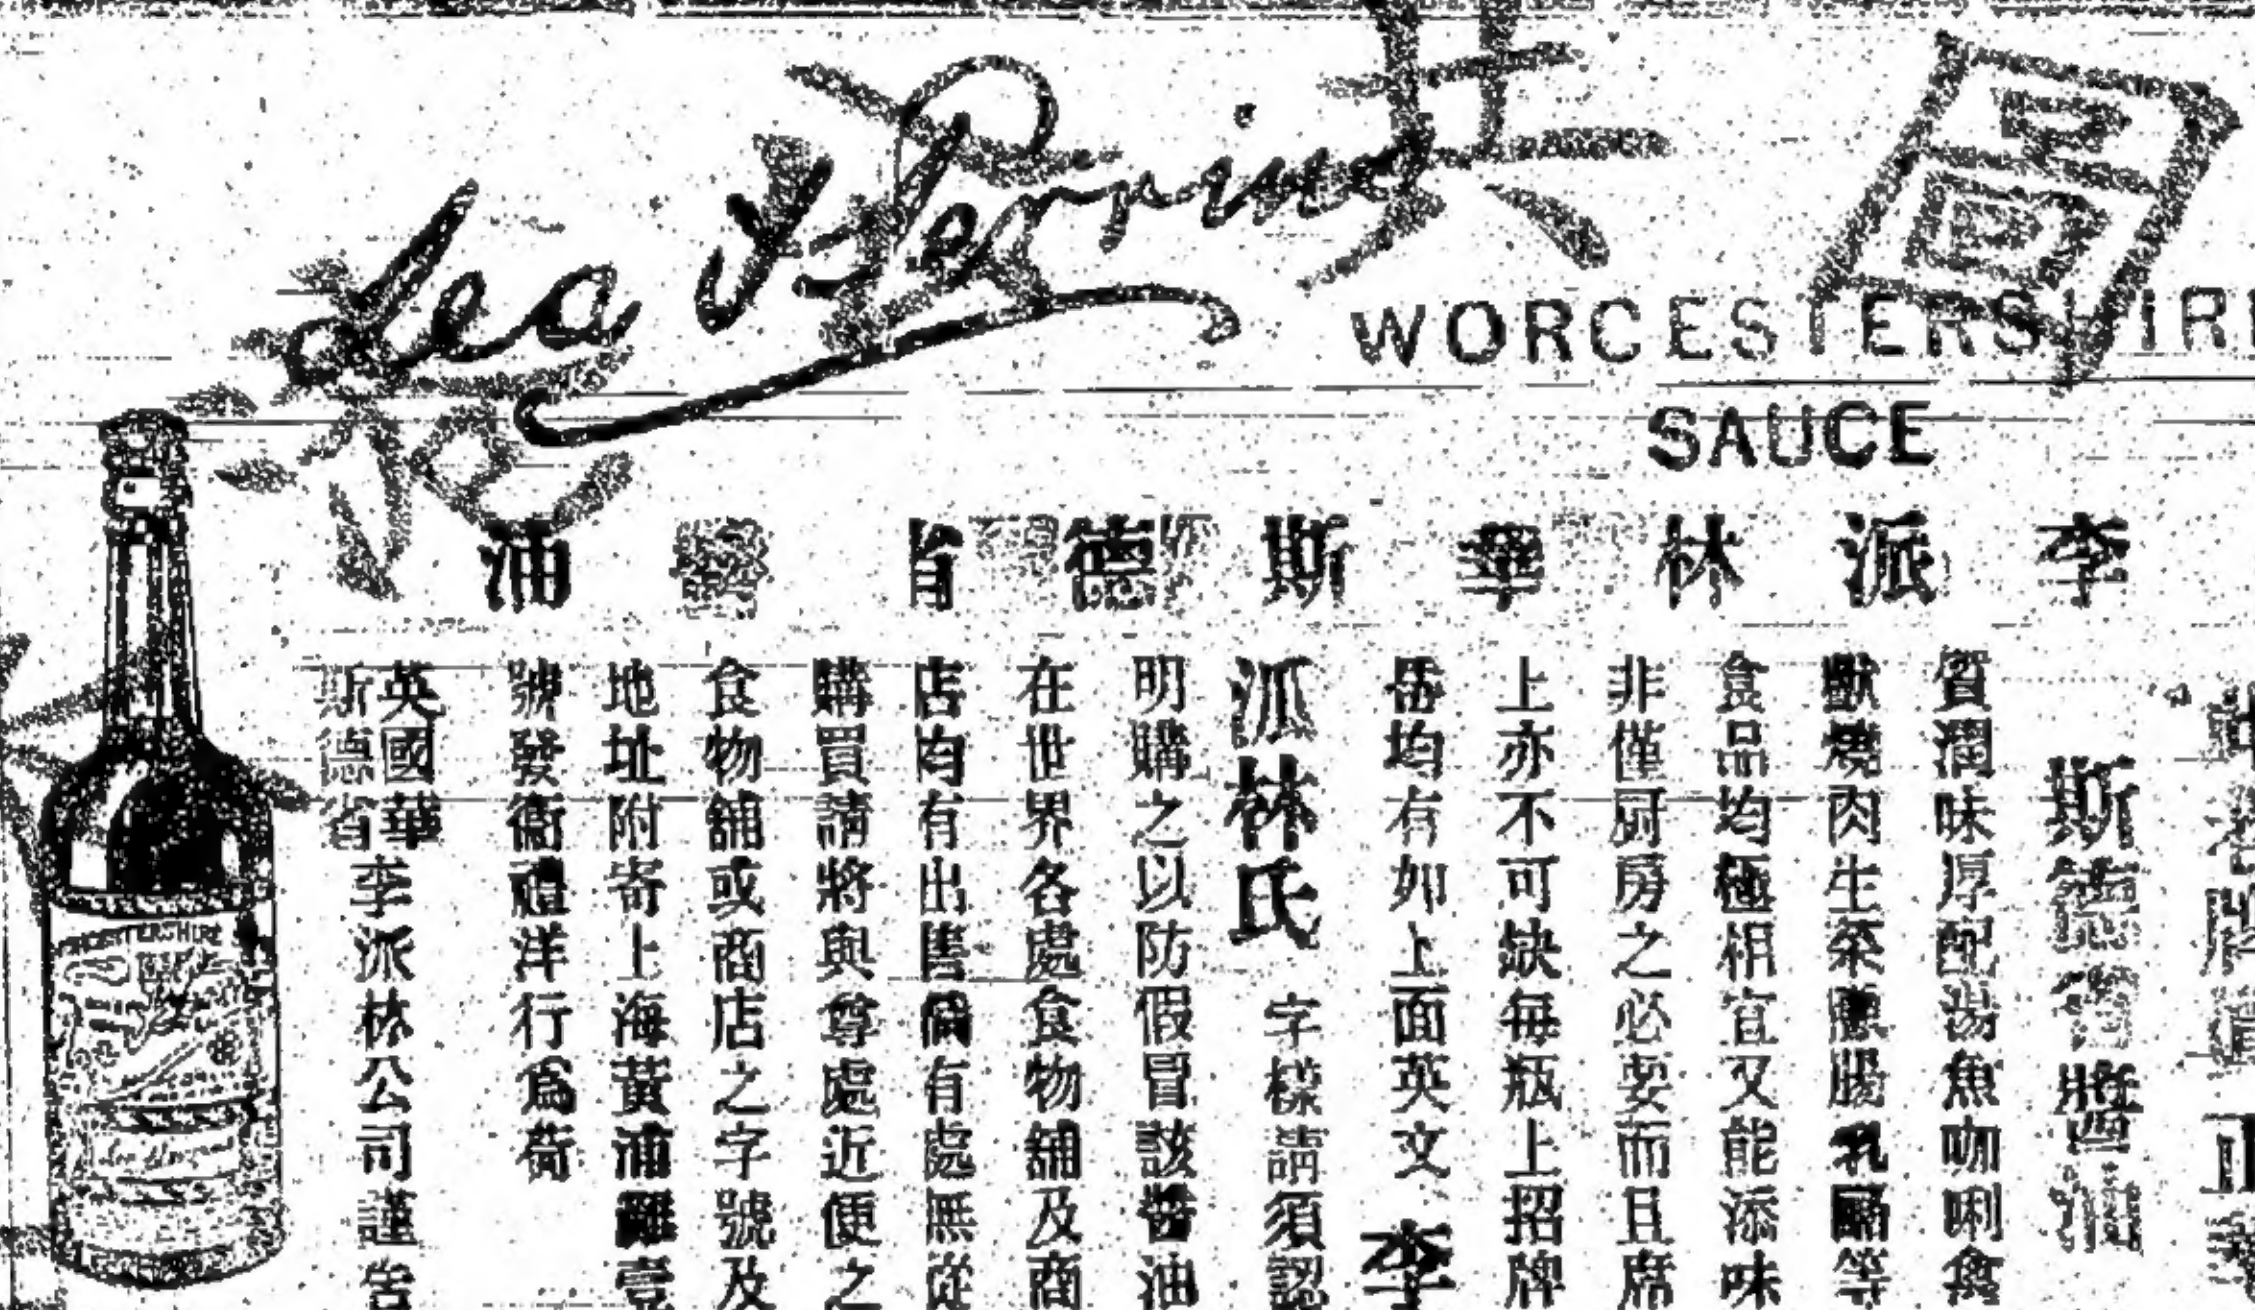 Lea & Perrins
WORCESTERSHIRE
SAUCE
李派林華斯德省醬油
斯德省醬油
質潤味厚配湯魚咖唎禽
獸燒肉生菜臘腸乳酪等
食品均極相宜又能添味
非僅厨房之必要而且席
上亦不可缺每瓶上招牌
均有如上面英文李
派林氏字樣請須認
明購之以防假冒該醬油
在世界各處食物舖及商
店均有出售倘有處無從
購買請將與尊處近便之
食物舖或商店之字號及
地址附寄上海黃浦灘壹
號發衞禮洋行爲荷
英國華
斯德省
李派林公司謹告